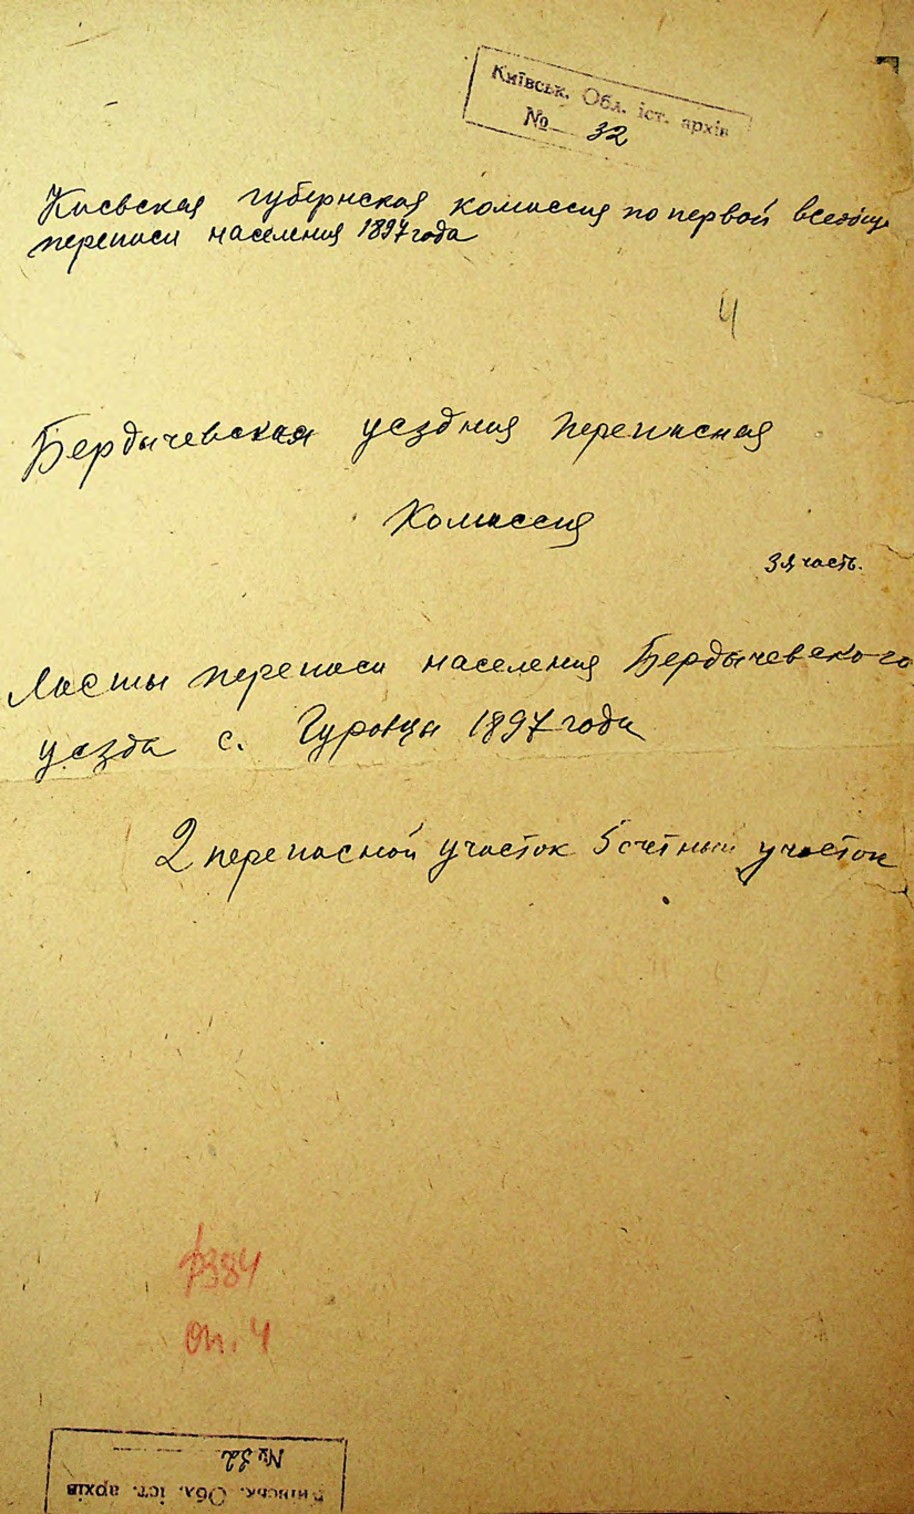 Київськ. Обл. іст. архів
№ 32
Киевская губернская комиссия по первой всеобщ
переписи населения 1897 года
4
Бердычевская уездная переписная
Комиссия
3я часть.
Листы переписи населения Бердычевского
уезда с. Гуровцы 1897 года
2 переписной участок 5 счетный участок
ф384
оп. 4
№ 32
Київськ. Обл. іст. архів